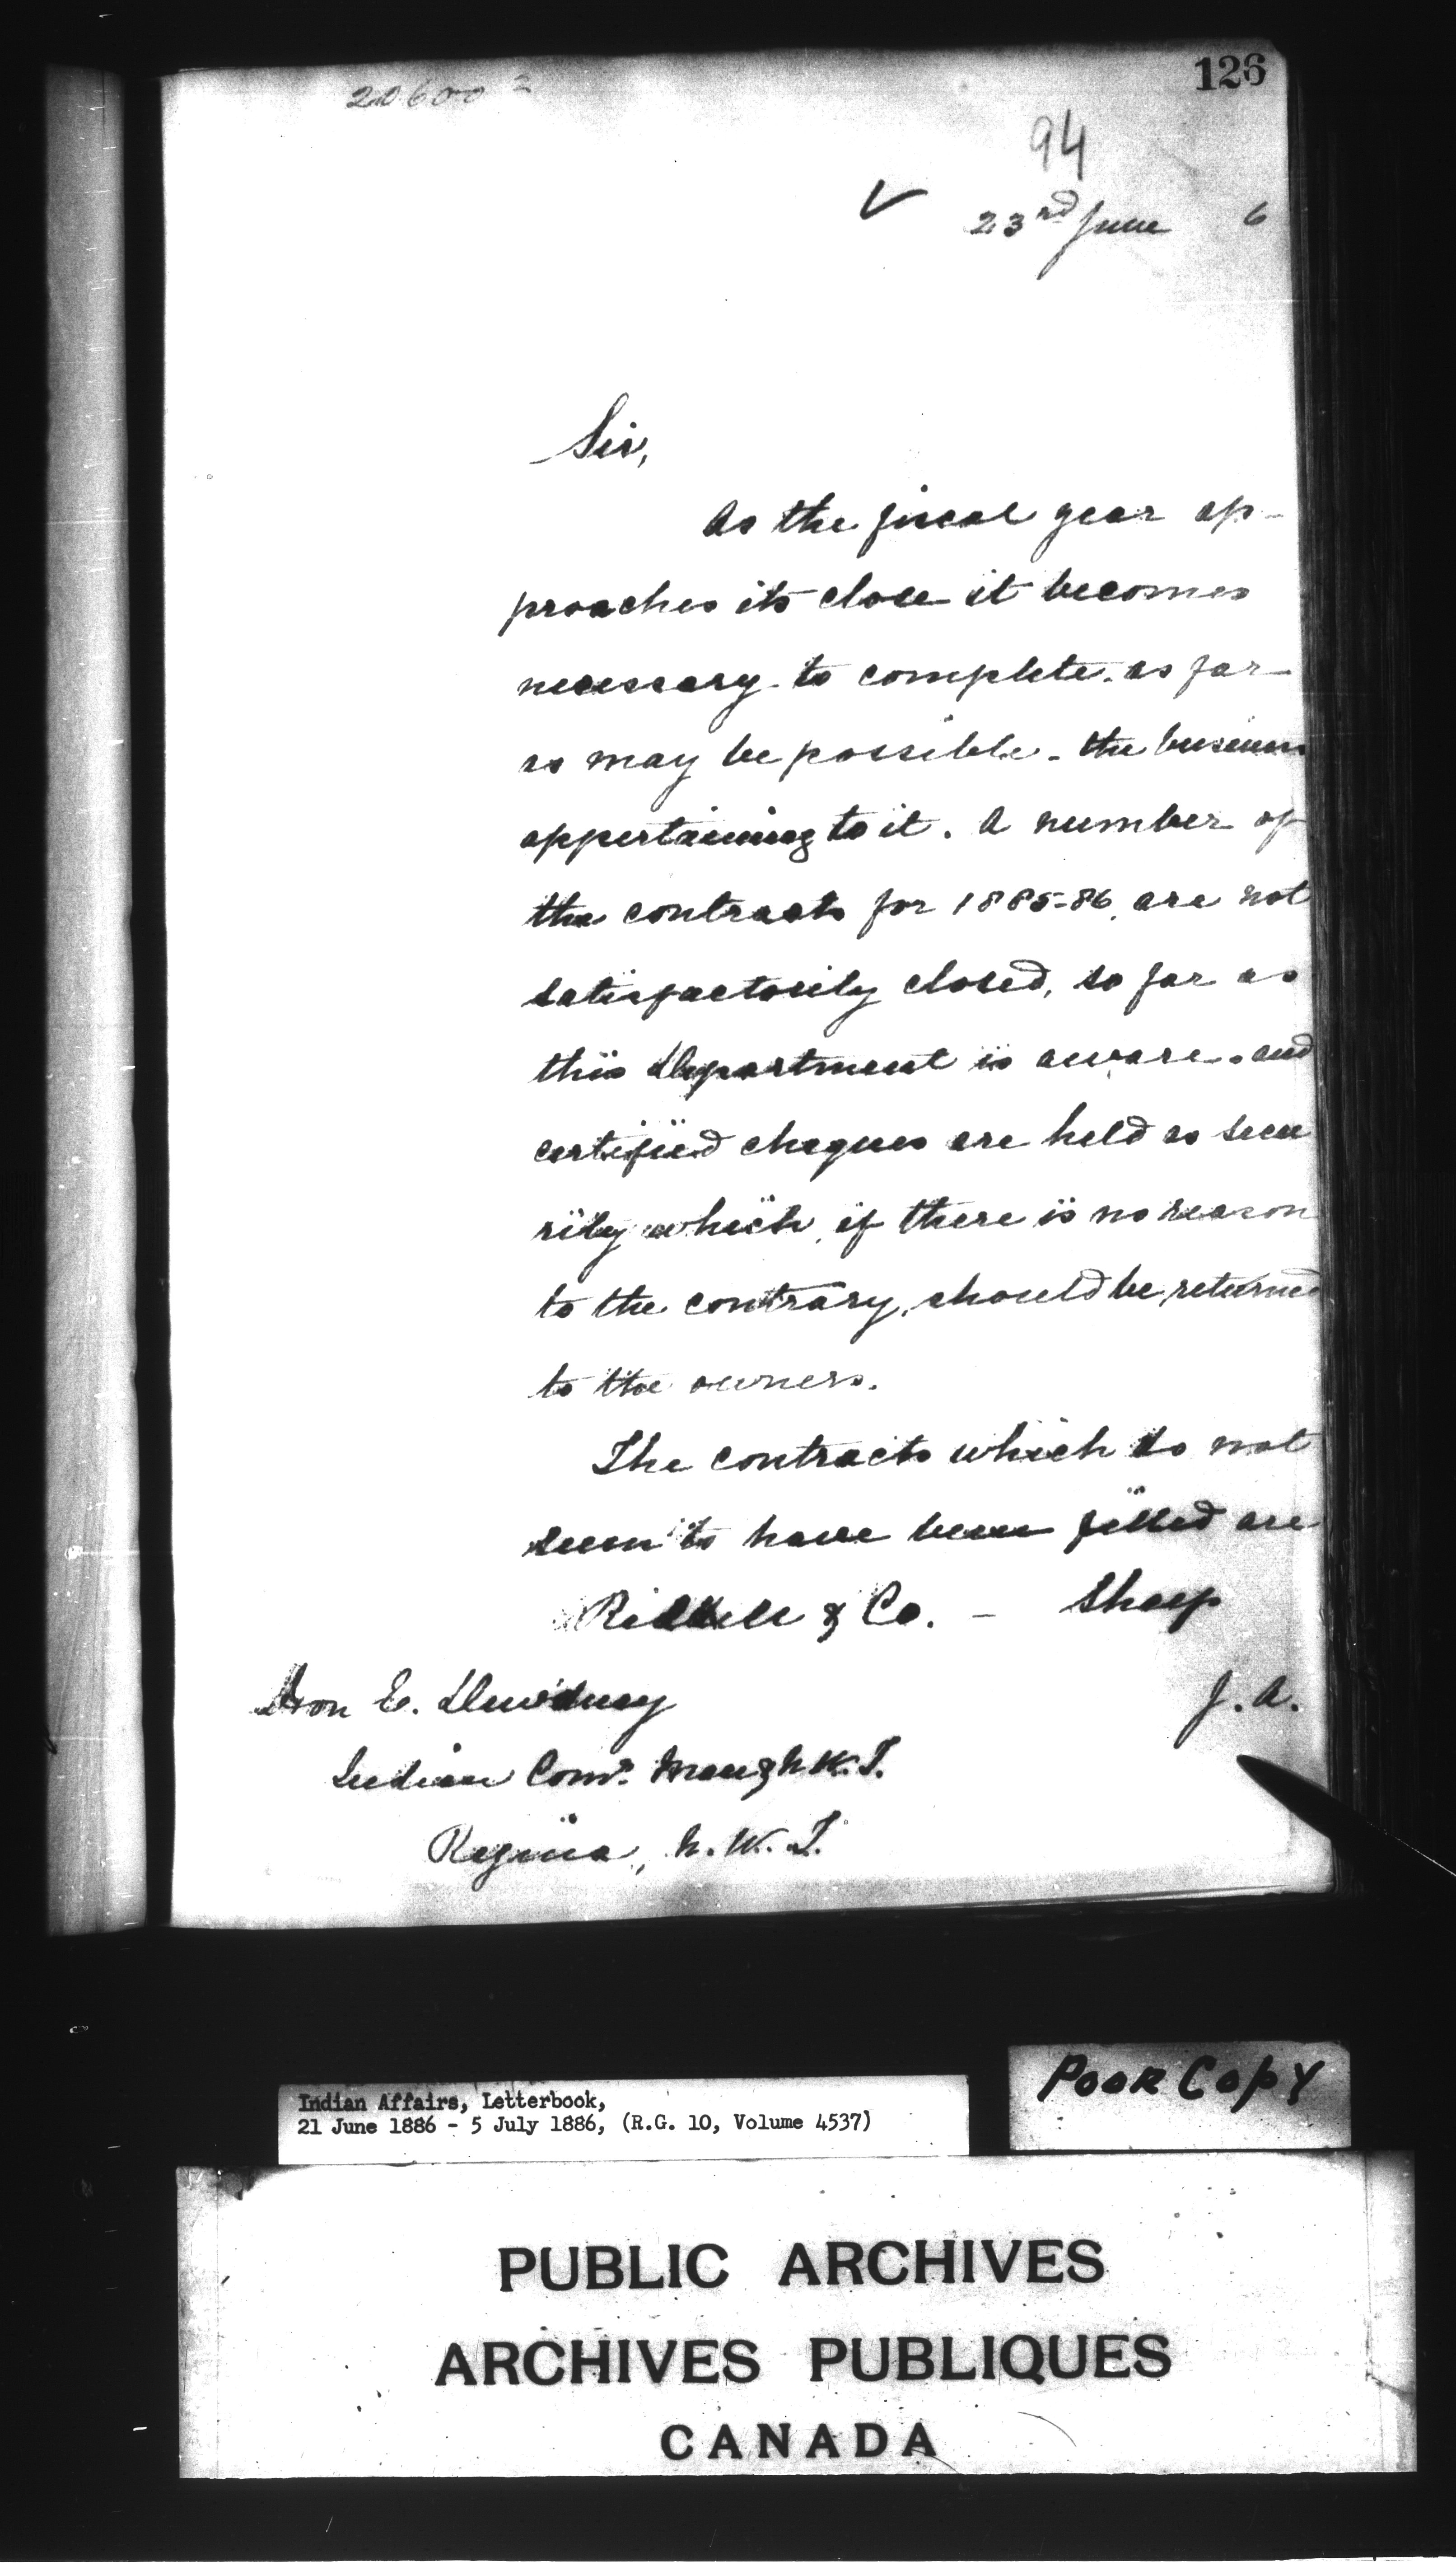 126
20600 2
94
✓ 23rd June 6
Sir,
As the fiscal year ap-
proaches its close it becomes
necessary to complete as far
as may be possible - the business
appertaining to it. A number of
the contracts for 1885-86, are not
satisfactorily closed, so far as
this Department is aware, and
certified cheques are held as secu
rity which, if there is no reason
to the contrary, should be returned
to the owners.
The contracts which do not
seem to have been filled are
Riddell & Co. - Sheep
Hon E. Dewdney
J. A.
Indian Comr. Man & N.W.T.
Regina, N.W.T.
Indian Affairs, Letterbook,
21 June 1886 - 5 July 1886, (R.G. 10, Volume 4537)
POOR COPY
PUBLIC ARCHIVES
ARCHIVES PUBLIQUES
CANADA